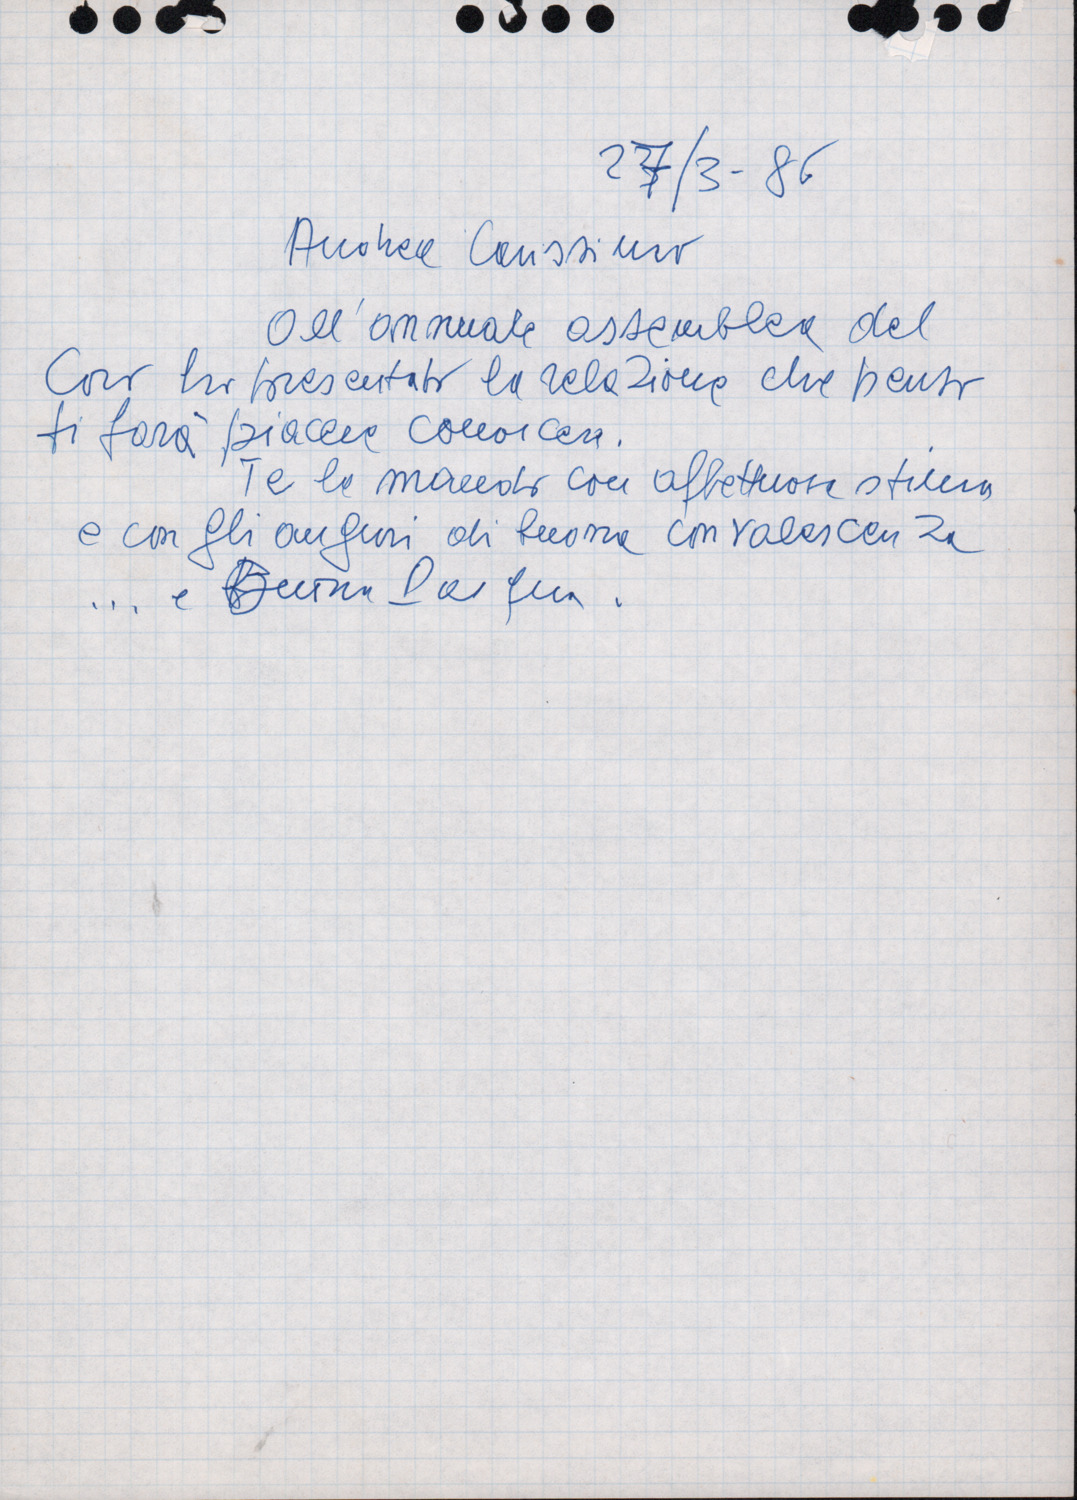 27/3-86
Andrea Carissimo
All'annuale assemblea del
Coro ho presentato la relazione che penso
ti farà piacere conoscere.
Te la mando con affettuosa stima
e con gli auguri di buona convalescenza
... e Buona Pasqua.